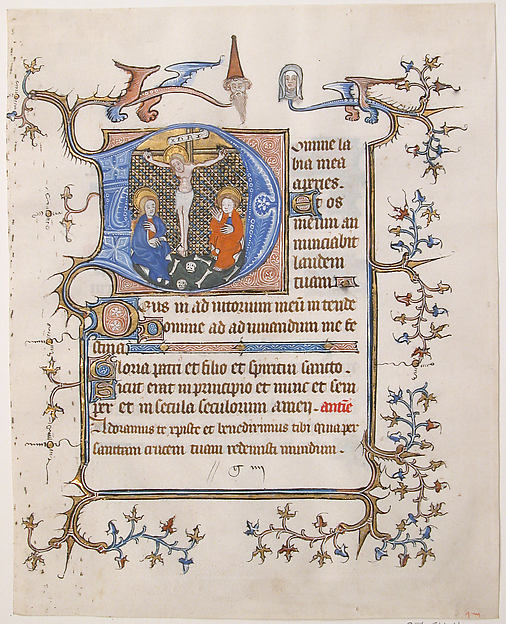 omine la
bia mea
aperies.
Et os
meum an
nunciabit
laudem
tuam
Deus in adiutorium meũ intende
Domine ad adiuuandum me fe
stina
Gloria patri et filio et spiritui sancto.
Sicut erat in principio et nunc et sem
per et in secula seculorum amen. antiẽ
Adoramus te xpiste et benedicimus tibi quia per
sanctam crucem tuam redemisti mundum.